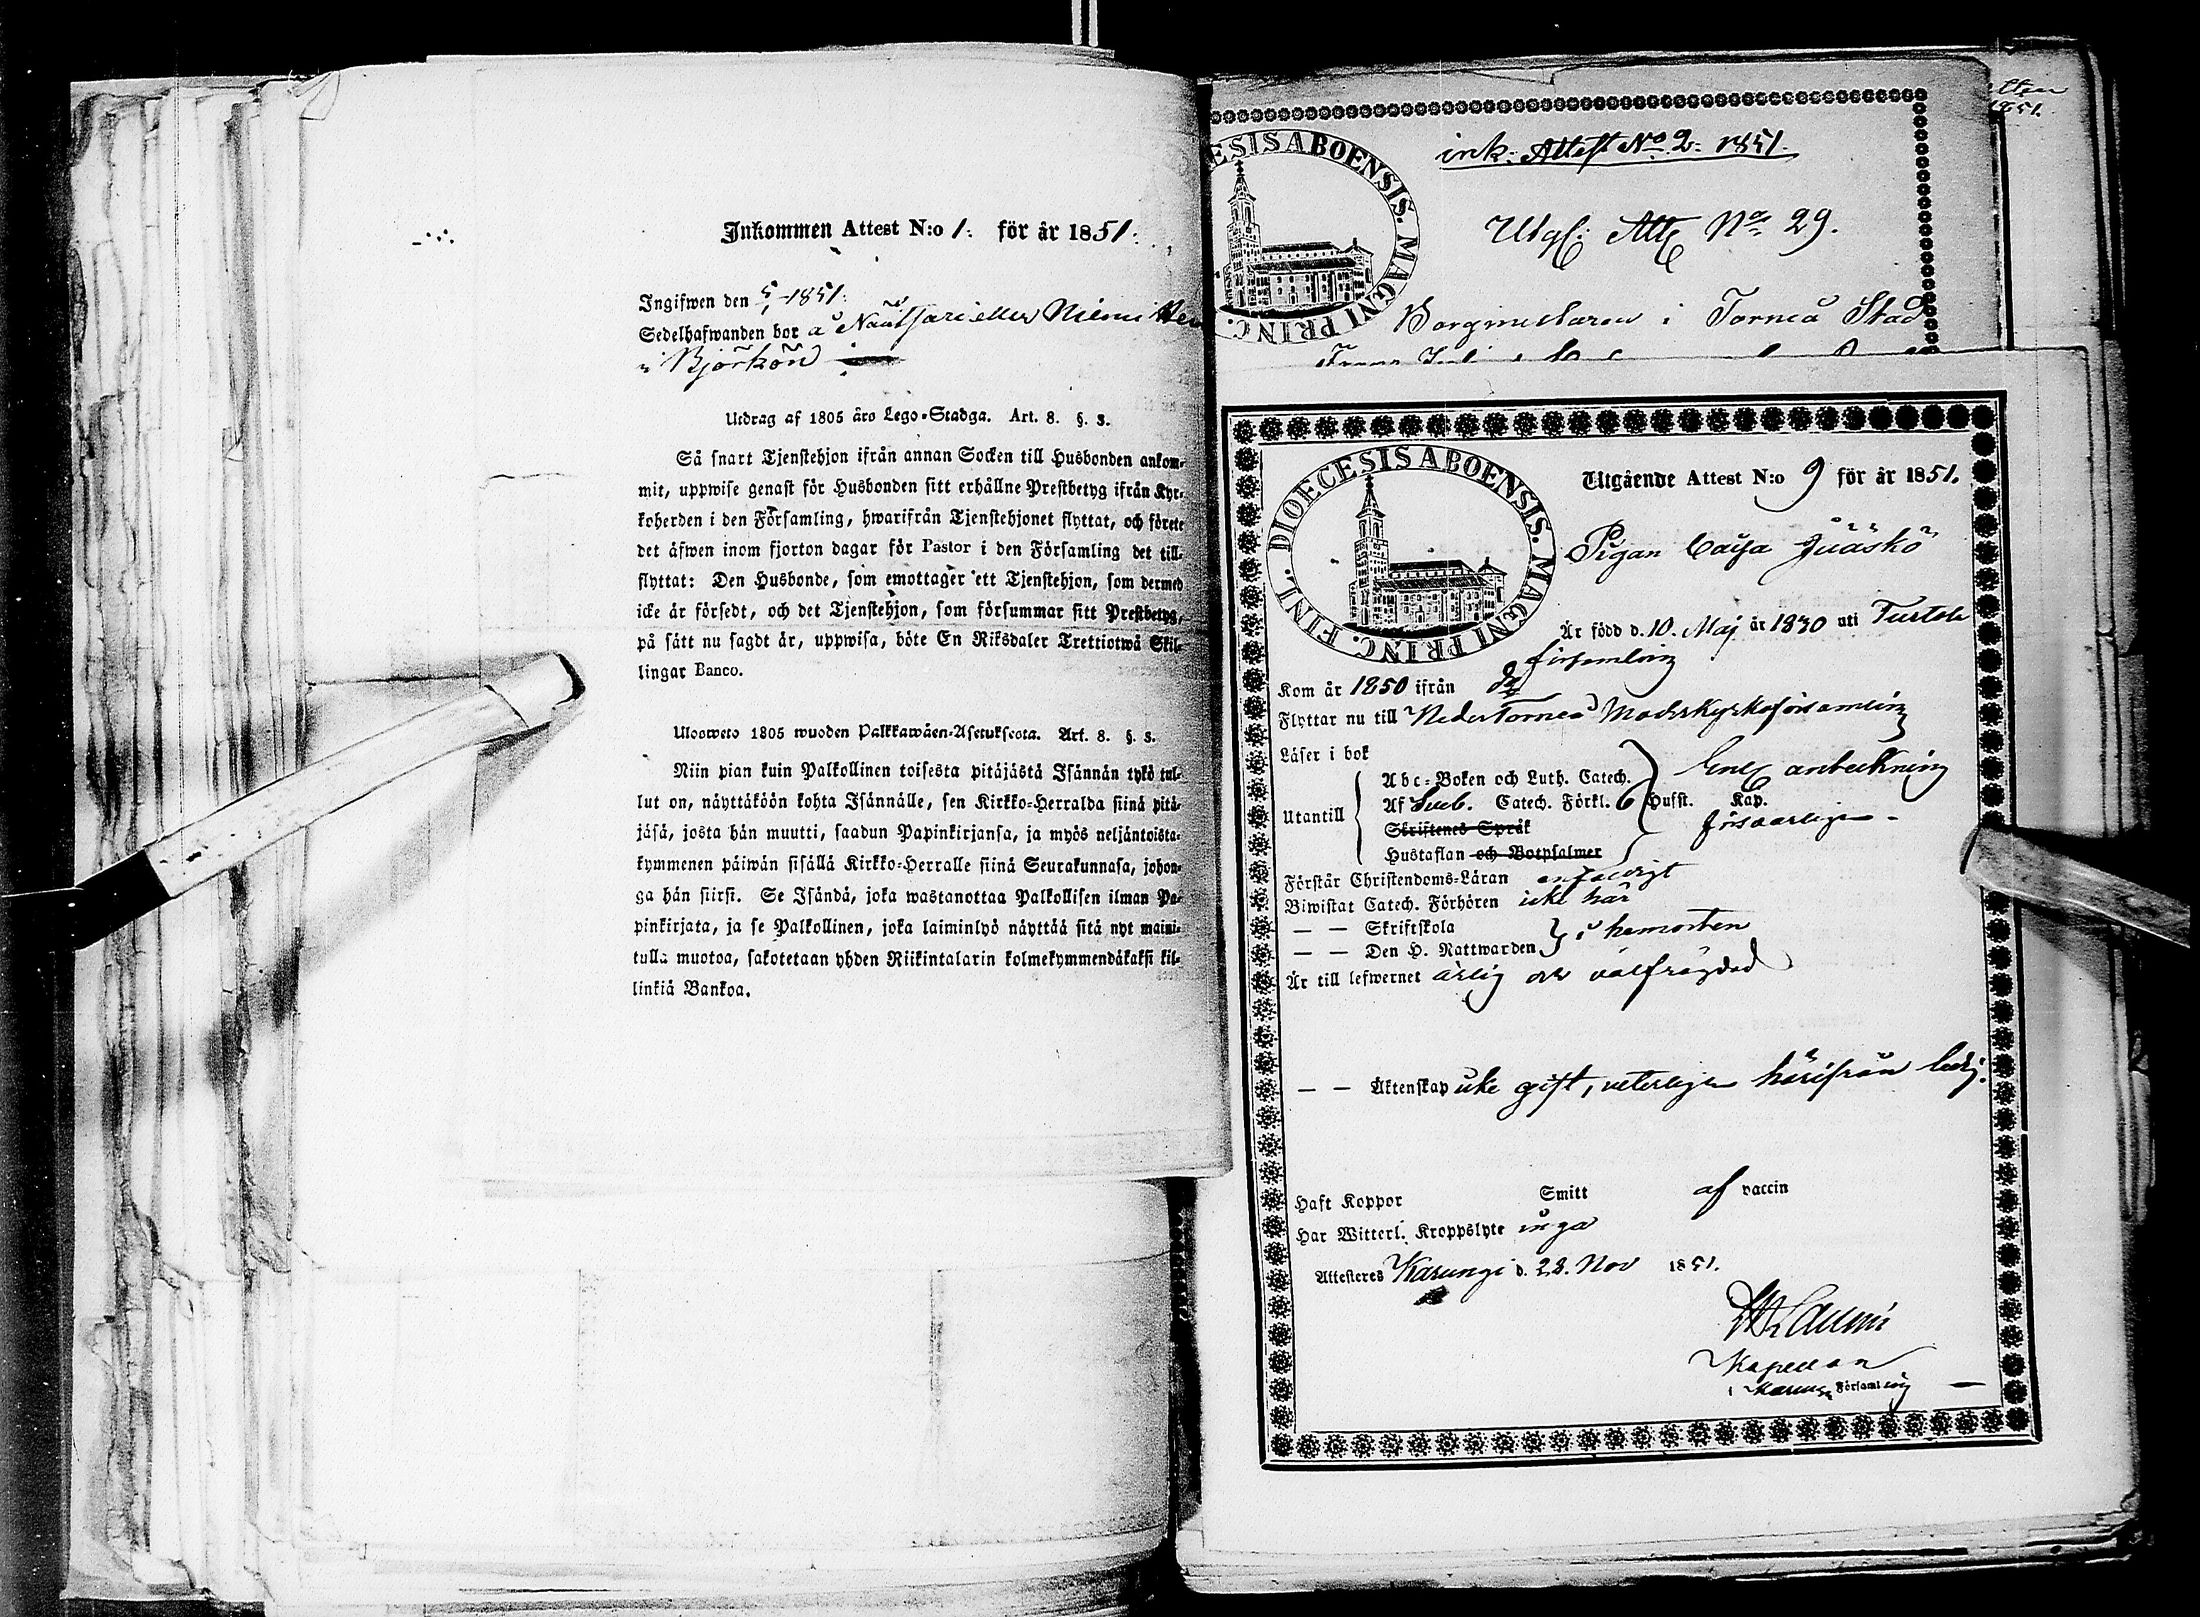 Inkommen Attest N:o 1. för år 1851.
Ingifwen den 5/1 1851.
Sedelhafwanden bor å eller Niemi
i Björkön
Utdrag af 1805 års Lego-Stadga. Art. 8. §. 3.
Så snart Tjenstehjon ifrån annan Socken till Husbonden ankom-
mit, uppwise genast för Husbonden sitt erhållne Prestbetyg ifrån Kyr-
koherden i den Församling, hwarifrån Tjenstehjonet flyttat, och förete
det äfwen inom fjorton dagar för Pastor i den Församling det till-
flyttat: Den Husbonde, som emottager ett Tjenstehjon, som dermed
icke är försedt, och det Tjenstehjon, som försummar sitt Prestbetyg,
på sätt nu sagdt är, uppwisa, böte En Riksdaler Trettiotwå Skil-
lingar Banco.
Ulosweto 1805 wuoden Palkkawäen-Asetuksesta. Art. 8. §. 3.
Niin pian kuin Palkollinen toisesta pitäjästä Isännän tykö tul-
lut on, näyttäköön kohta Isännälle, sen Kirkko-Herralda siinä pitä-
jäsä, josta hän muutti, saadun Papinkirjansa, ja myös neljäntoista-
kymmenen päiwän sisällä Kirkko-Herralle siinä Seurakunnasa, johon-
ga hän siirsi. Se Isändä, joka wastanottaa Palkollisen ilman Pa-
pinkirjata, ja se Palkollinen, joka laiminlyö näyttää sitä nyt maini-
tulla muotoa, sakotetaan yhden Riikintalarin kolmekymmendäkaksi kil-
linkiä Bankoa.
1851.
ESIS ABOENSIS. MAGNI PRINC.
ink. Attest No 2. 1851.
Utgl. Att No 29.
Borgmästaren i Torneå Stad
DIOECESIS ABOENSIS. MAGNI PRINC. FINL.
Utgående Attest N:o 9 för år 1851.
Pigan Caisa Jääskö
Är född d. 10. Maj år 1830 uti Turtola
församling
Kom år 1850 ifrån
Flyttar nu till NederTorneå Moderkyrkoförsamling
Läser i bok
Utantill
Abc-Boken och Luth. Catech.
Af Sveb. Catech. Förkl. 6 Husst. Kap.
Skriftenes Språk
Hustaflan och Botpsalmer
Enl. anteckning
försvarligen -
Förstår Christendoms-Läran enfaldigt
Biwistat Catech. Förhören icke här
— — Skriftskola
— — Den H. Nattwarden
i hemorten
Är till lefwernet ärlig och välfrägdad
— — Äktenskap icke gift, veterligen härifrån ledig.
Haft Koppor Smitt af vaccin
Har Witterl. Kroppslyte inga
Attesteres Karungi d. 28. Nov 1851.
Kapellan
i Karungi Församling —